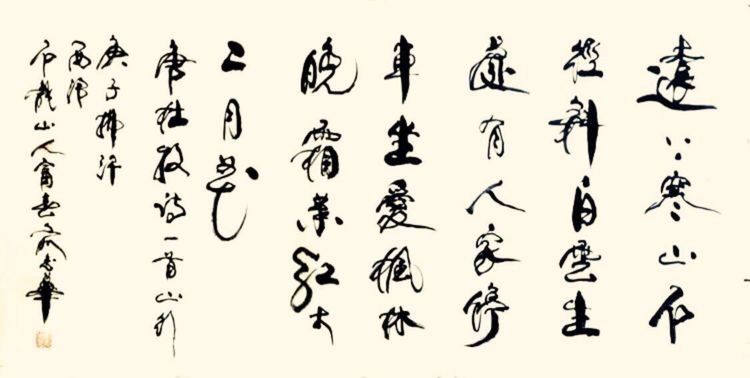 遠上寒山石
徑斜白雲生
處有人家停
車坐愛楓林
晚霜葉紅於
二月花
唐杜牧诗一首山行
庚子揮汗
石龍山人富春